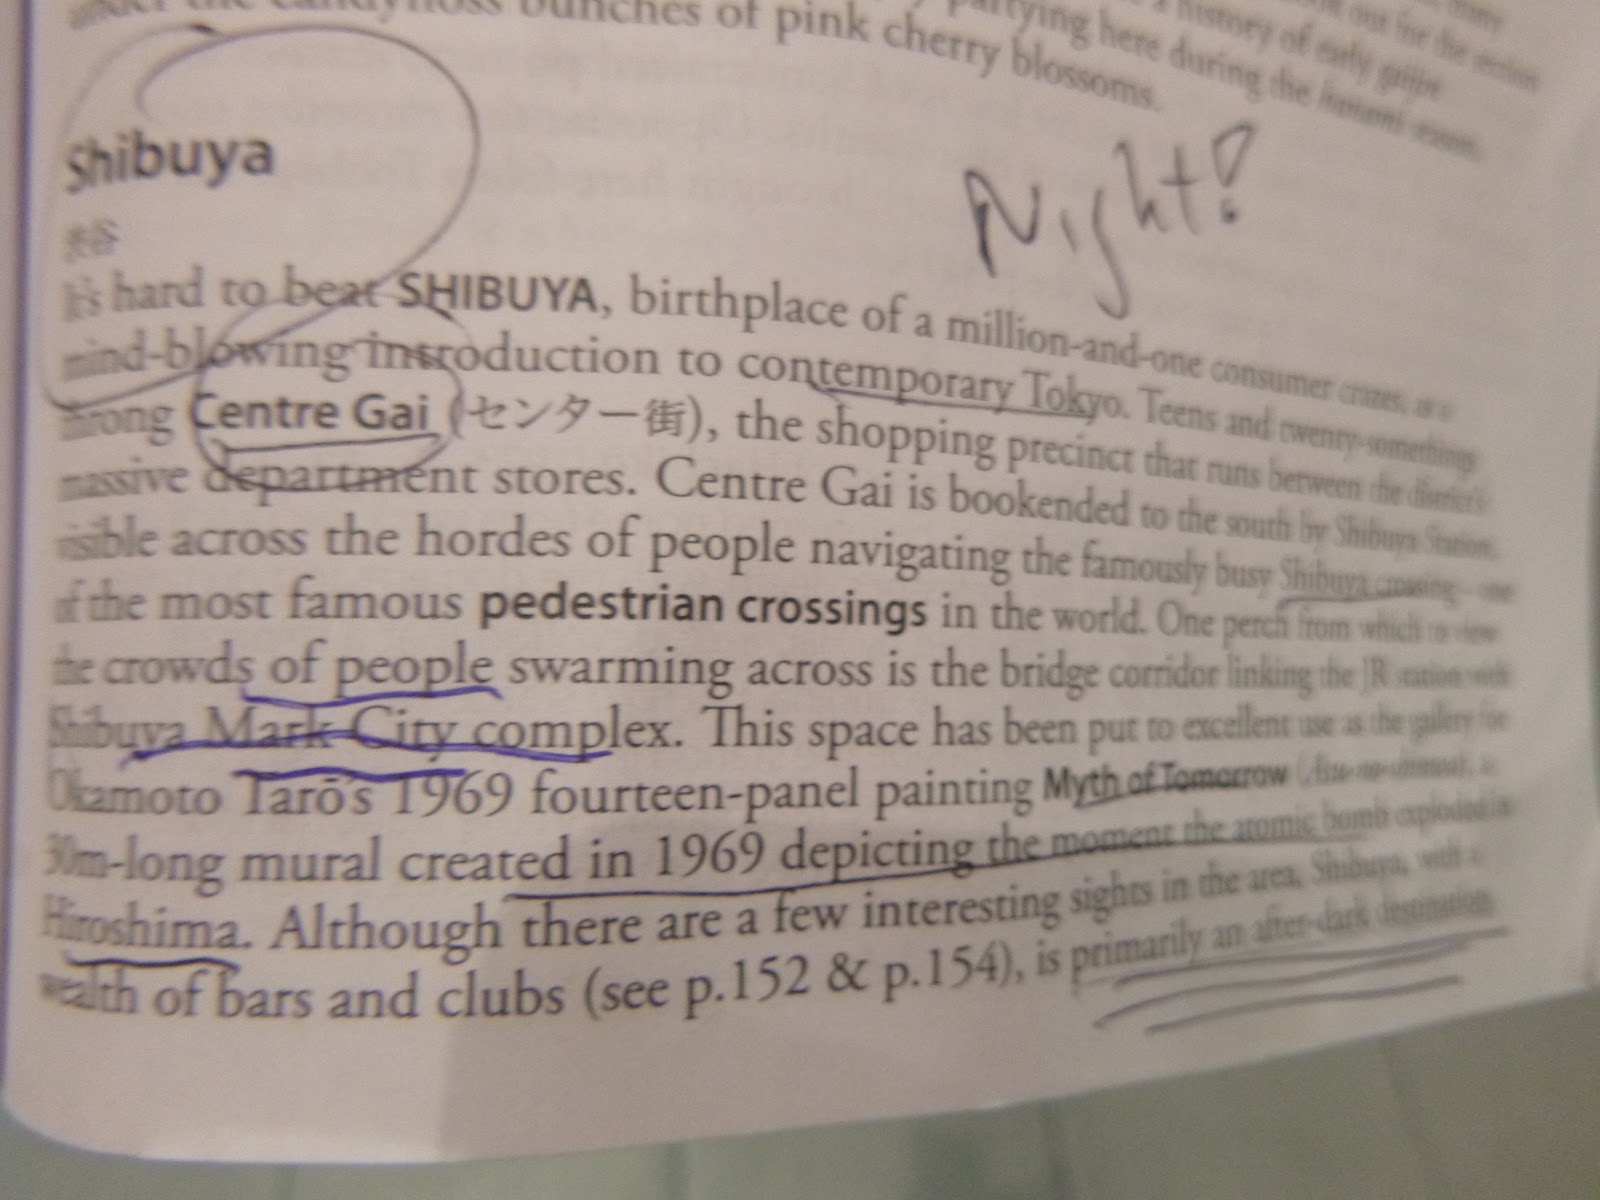 under the candyfloss bunches of pink cherry blossoms.
partying here during the hanami season.
history of early
out for the
Night!
Shibuya
渋谷
It's hard to beat SHIBUYA, birthplace of a million-and-one consumer crazes, as a
mind-blowing introduction to contemporary Tokyo. Teens and twenty-somethings
throng Centre Gai (センター街), the shopping precinct that runs between the district's
massive department stores. Centre Gai is bookended to the south by Shibuya Station,
visible across the hordes of people navigating the famously busy Shibuya crossing – one
of the most famous pedestrian crossings in the world. One perch from which to view
the crowds of people swarming across is the bridge corridor linking the JR station with
Shibuya Mark City complex. This space has been put to excellent use as the gallery for
Okamoto Tarō's 1969 fourteen-panel painting Myth of Tomorrow (
30m-long mural created in 1969 depicting the moment the atomic bomb exploded in
Hiroshima. Although there are a few interesting sights in the area, Shibuya, with a
wealth of bars and clubs (see p.152 & p.154), is primarily an after-dark destination.